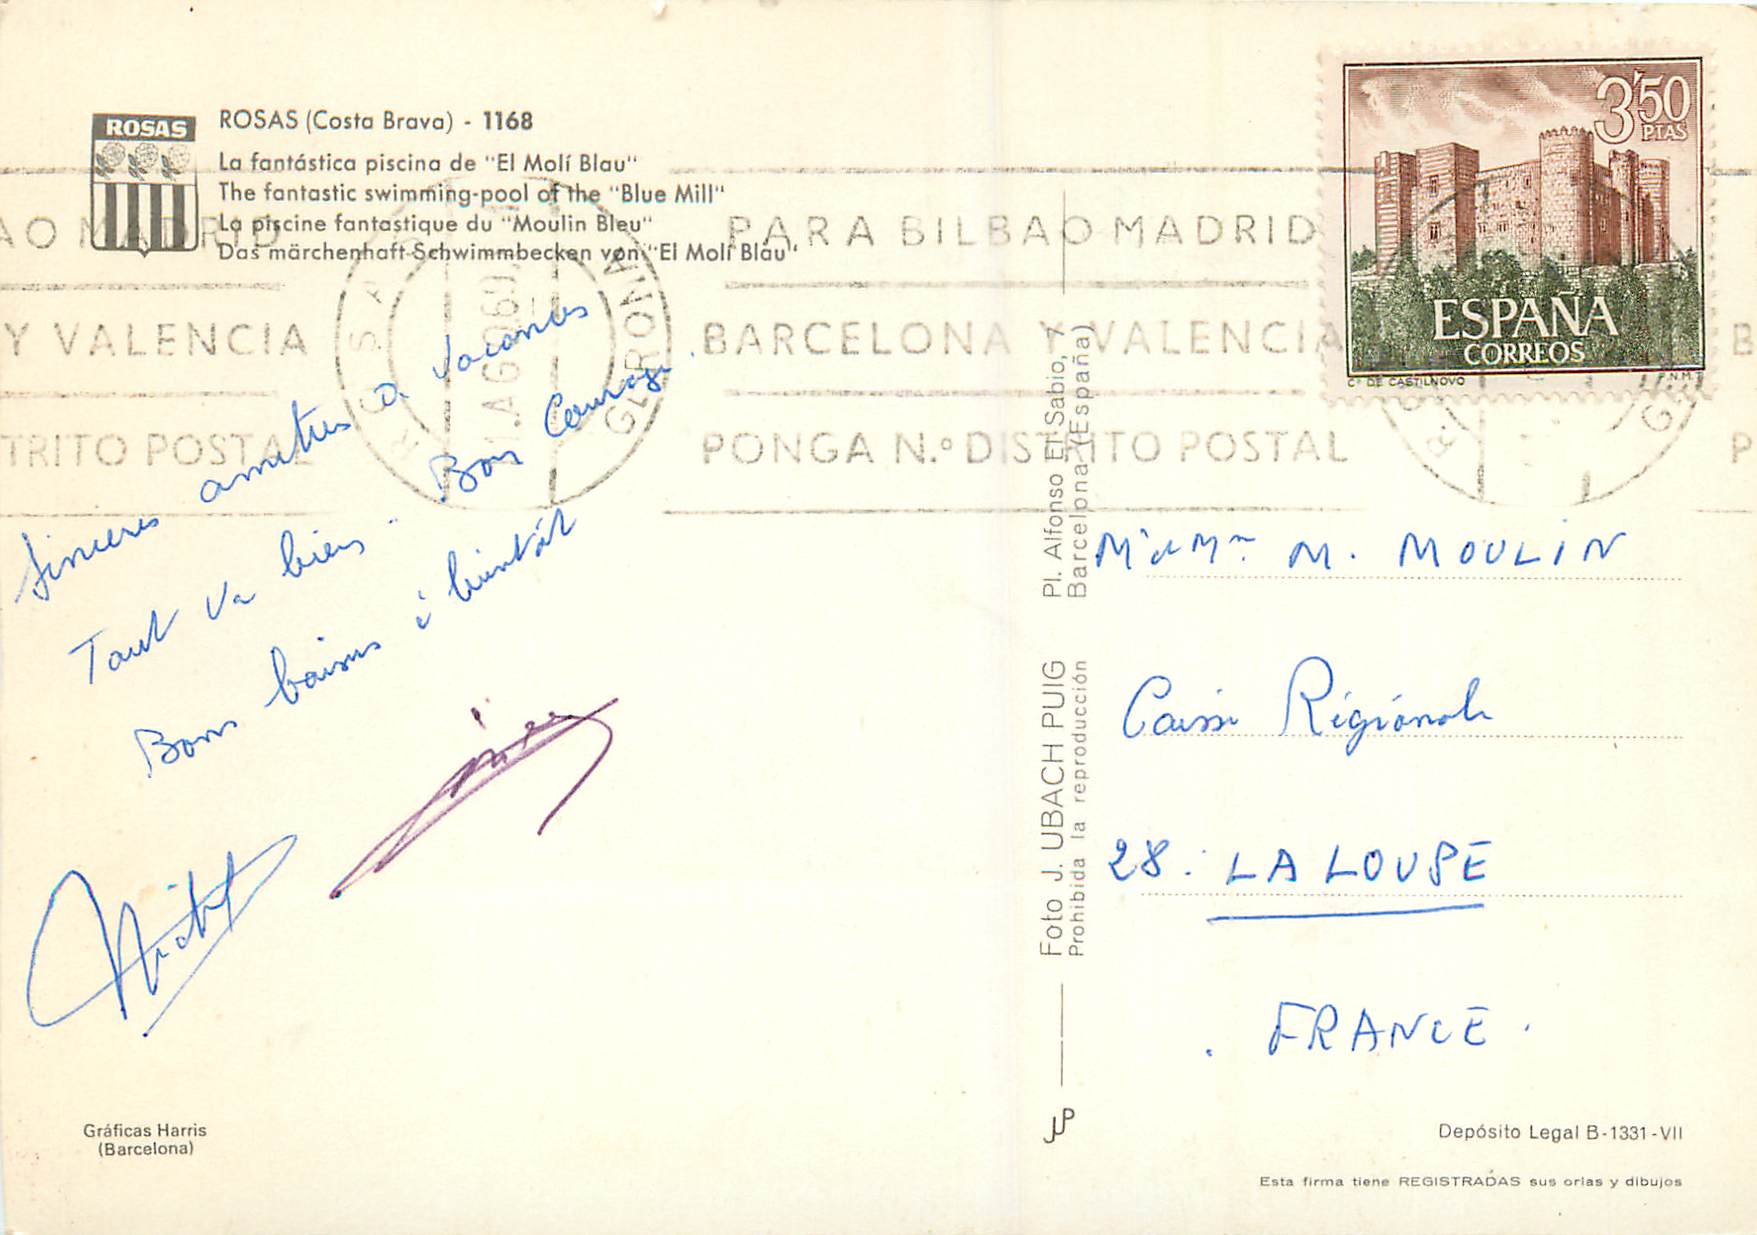 ROSAS
ROSAS (Costa Brava) - 1168
La fantástica piscina de "El Molí Blau"
The fantastic swimming-pool of the "Blue Mill"
La piscine fantastique du "Moulin Bleu"
Das märchenhaft-Schwimmbecken von "El Molí Blau"
AO MADRID
Y VALENCIA
TRITO POSTAL
ROSAS
GERONA
PARA BILBAO MADRID
BARCELONA Y VALENCIA
PONGA N.º DISTRITO POSTAL
3'50
PTAS
ESPAÑA
CORREOS
Cº DE CASTILNOVO
F.N.M.T.
Sincères amitiés de vacances
Tout va bien. Bon courage.
Bons baisers à bientôt
Michel
Mr et Mme M. MOULIN
Caisse Régionale
28. LA LOUPE
. FRANCE .
Foto J. UBACH PUIG Pl. Alfonso El Sabio, 7
Prohibida la reproducción Barcelona (España)
JUP
Gráficas Harris
(Barcelona)
Depósito Legal B-1331-VII
Esta firma tiene REGISTRADAS sus orlas y dibujos